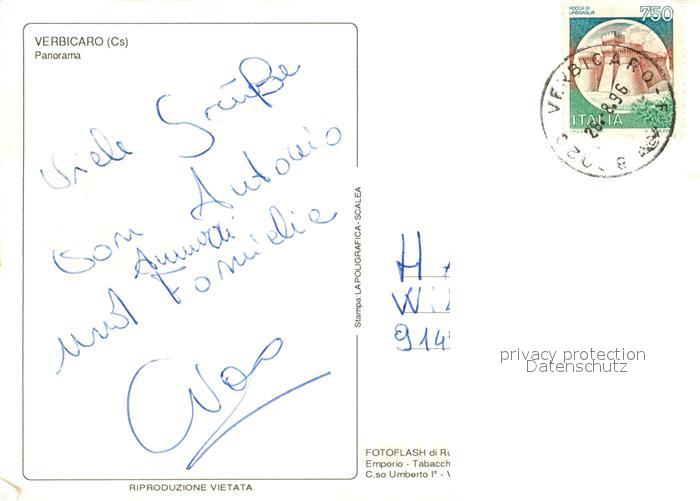 VERBICARO (Cs)
Panorama
Viele Grüße
von Antonio
Annetti
und Familia
Ciao
Stampa: LA POLIGRAFICA - SCALEA
RIPRODUZIONE VIETATA
ROCCA DI
URBISAGLIA
750
ITALIA
VERBICARO
26.8.96
H
Wi
914
privacy protection
Datenschutz
FOTOFLASH di Ru
Emporio - Tabacch
C.so Umberto I° - V